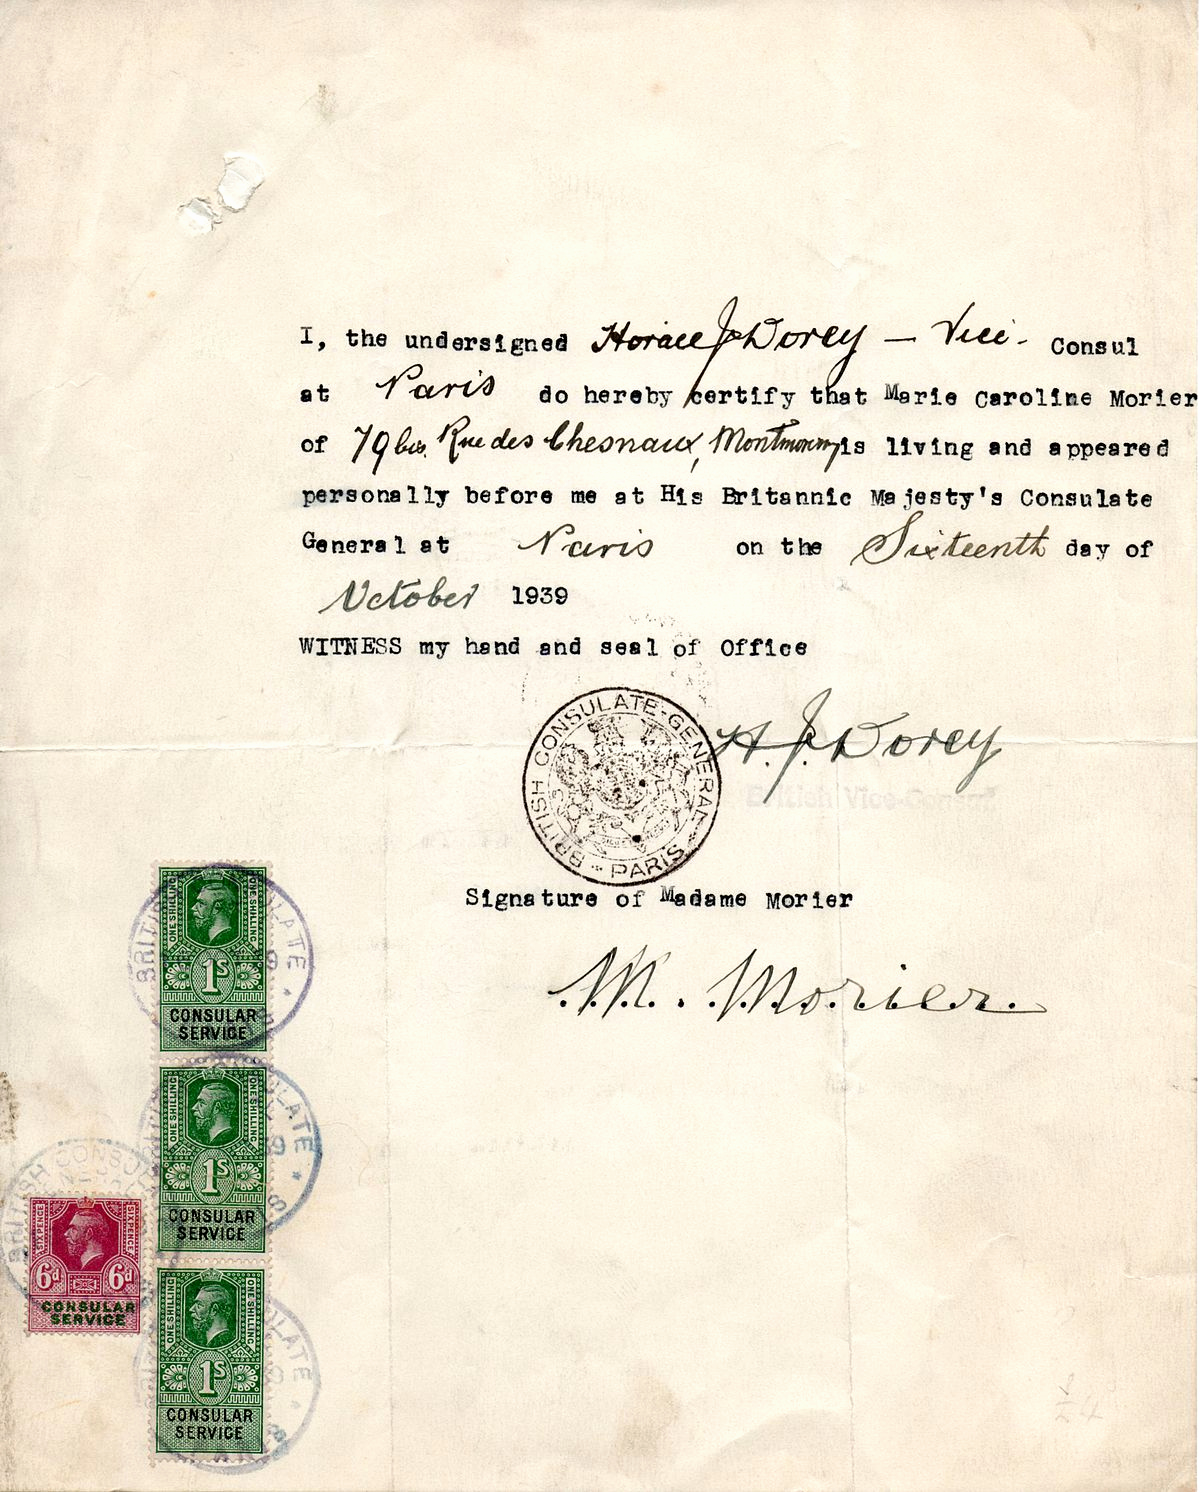 I, the undersigned Horace J Dorey — Vice- Consul
at Paris do hereby certify that Marie Caroline Morier
of 79 bis. Rue des Chesnaux, Montmorency is living and appeared
personally before me at His Britannic Majesty's Consulate
General at Paris on the Sixteenth day of
October 1939
WITNESS my hand and seal of Office
BRITISH CONSULATE-GENERAL PARIS
H. J. Dorey
British Vice-Consul
Signature of Madame Morier
M. Morier.
ONE SHILLING ONE SHILLING
1S
CONSULAR
SERVICE
ONE SHILLING ONE SHILLING
1S
CONSULAR
SERVICE
SIXPENCE SIXPENCE
6d 6d
CONSULAR
SERVICE
ONE SHILLING ONE SHILLING
1S
CONSULAR
SERVICE